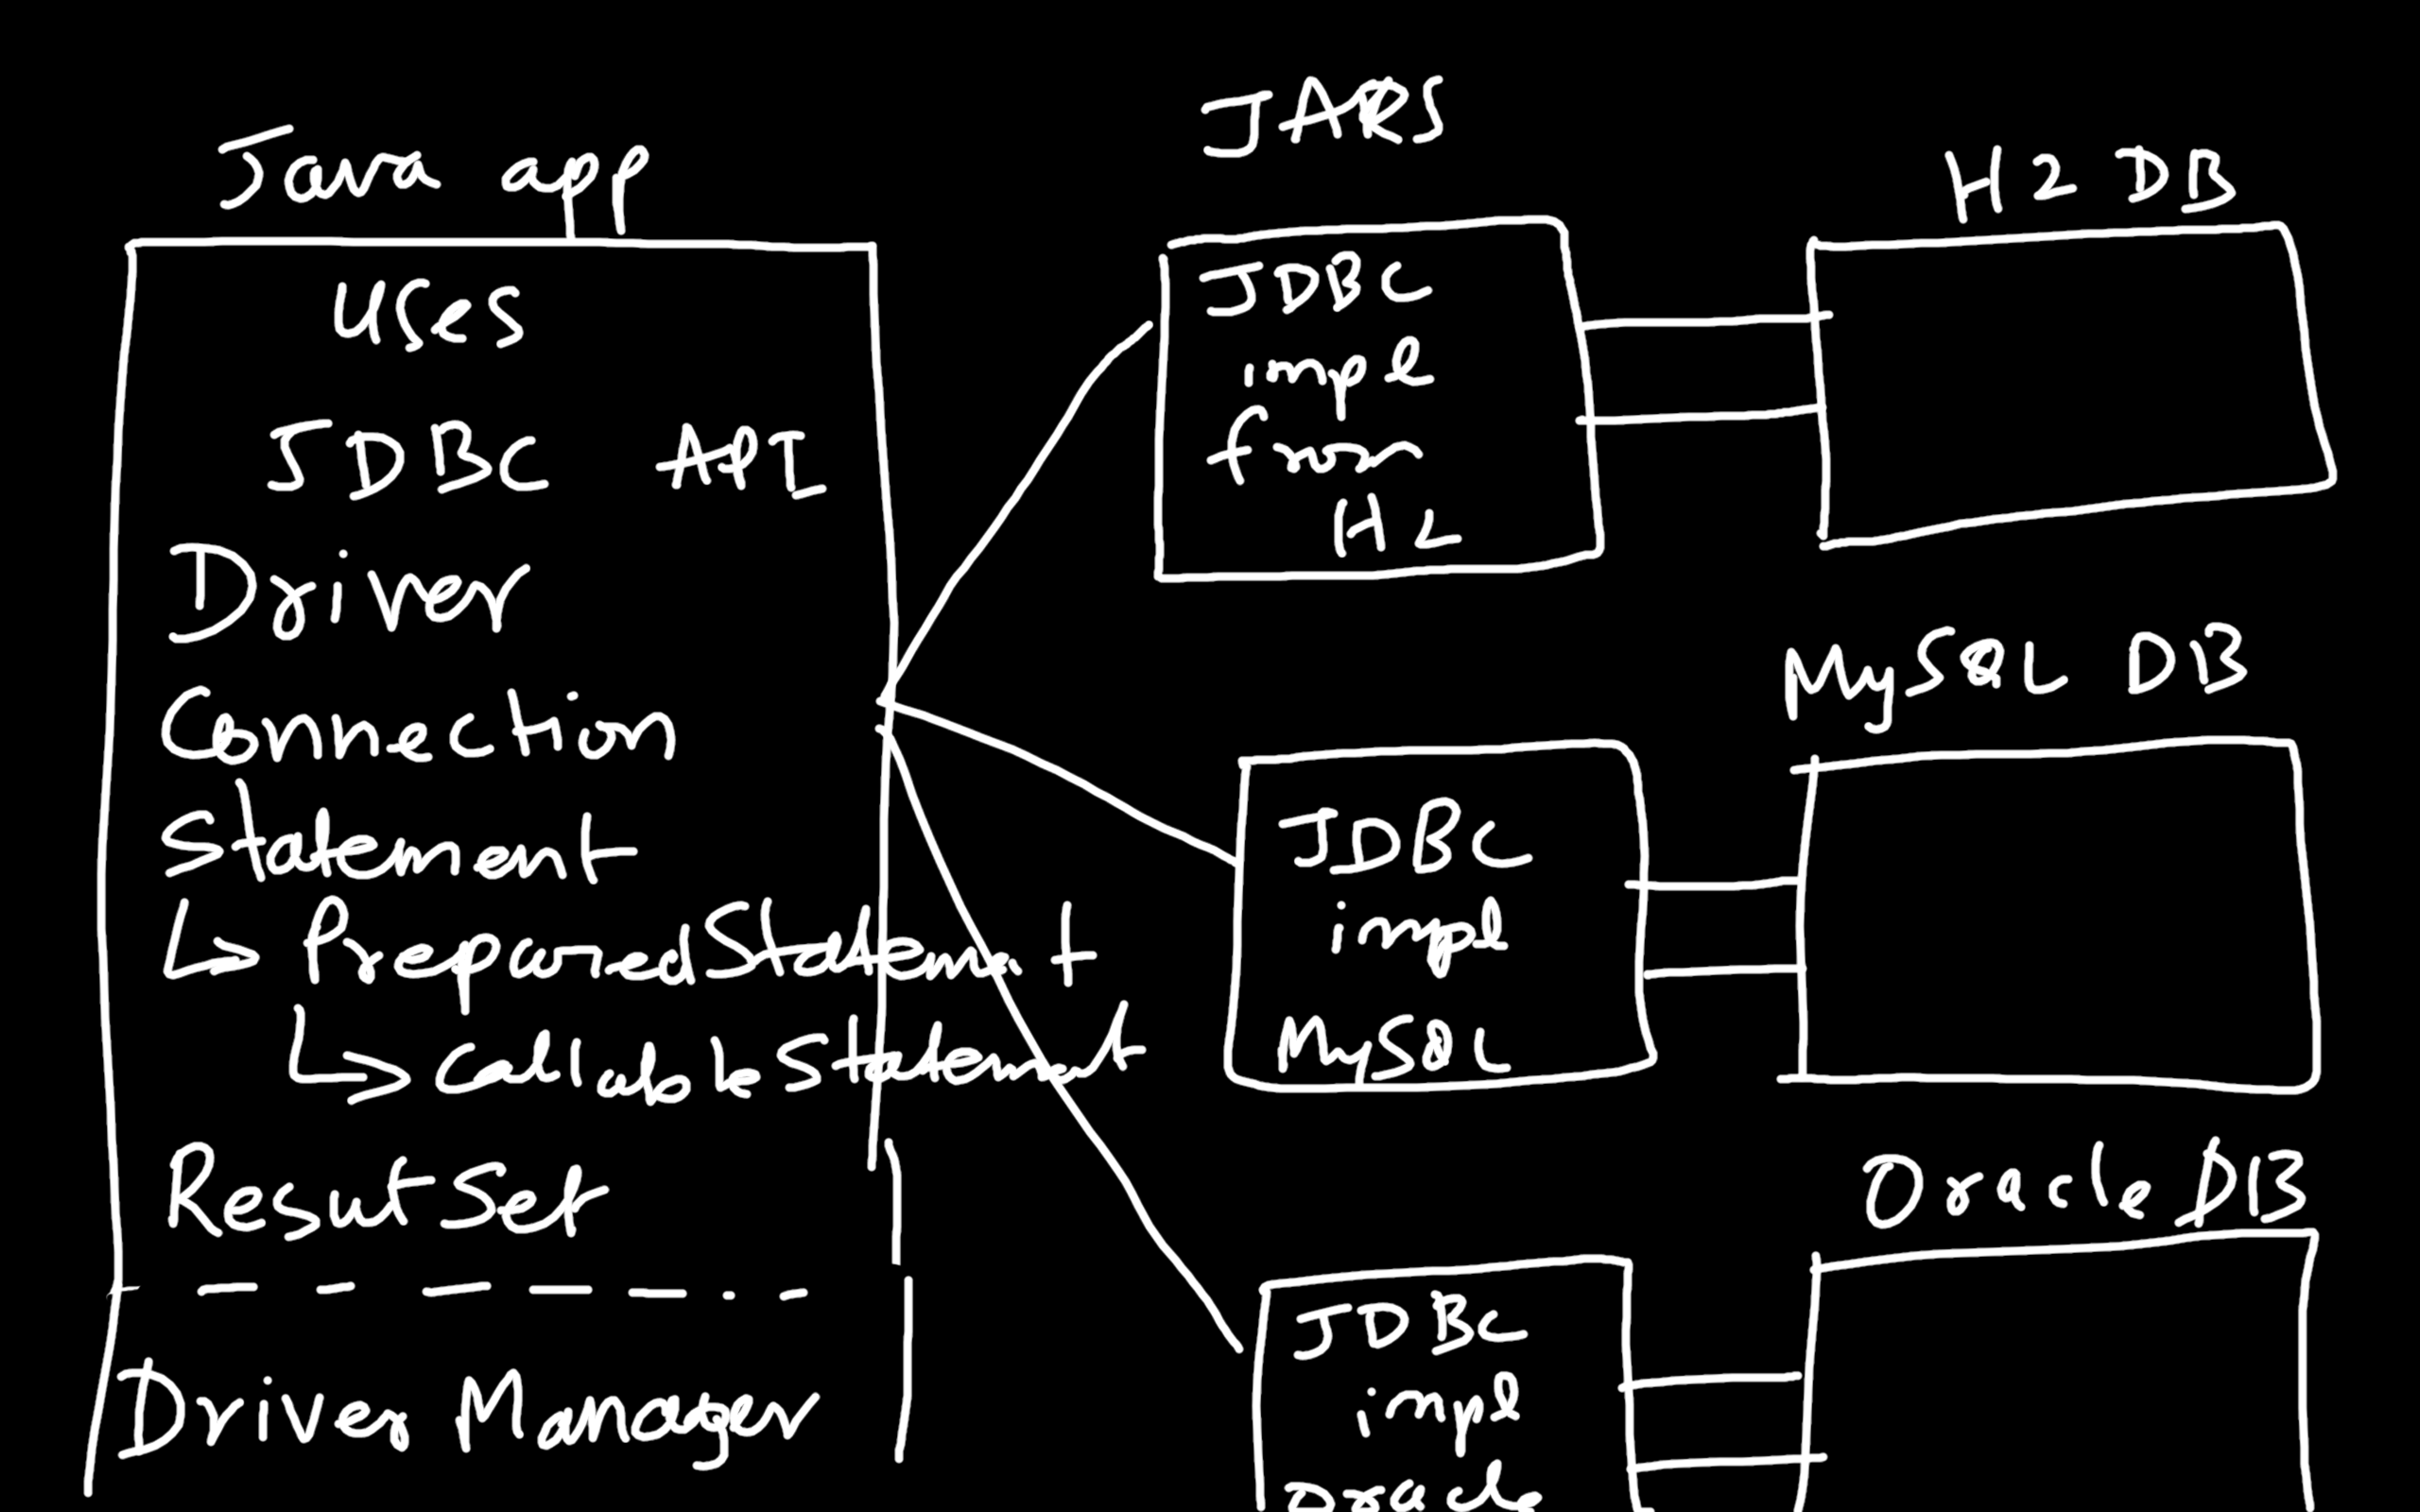 Java app
Uses
JDBC API
Driver
Connection
Statement
↳ PreparedStatement
↳ CallableStatement
ResutSet
Driver Manager
JARS
JDBC
impl
from
H2
H2 DB
MySQL DB
JDBC
impl
MySQL
Oracle DB
JDBC
impl
Oracle